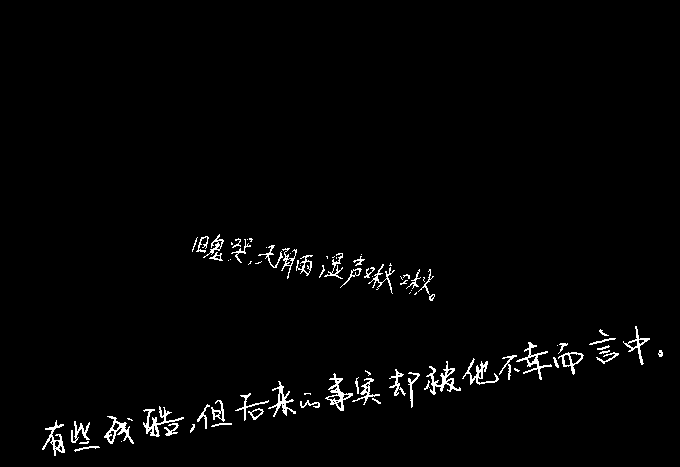 旧鬼哭,天阴雨湿声啾啾。
有些残酷,但后来的事实却被他不幸而言中。